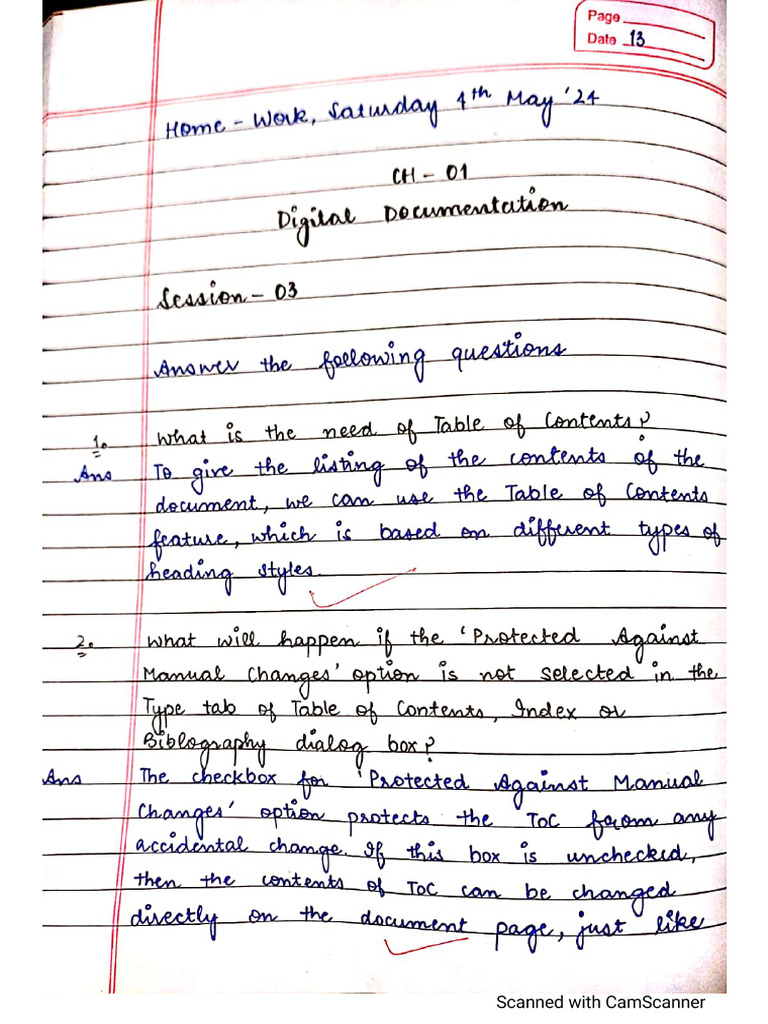 Page
Date 13
Home - Work, Saturday 4th May '24
CH - 01
Digital Documentation
Session - 03
Answer the following questions
1. What is the need of Table of Contents?
Ans To give the listing of the contents of the
document, we can use the Table of Contents
feature, which is based on different types of
heading styles.
2. What will happen if the 'Protected Against
Manual Changes' option is not selected in the
Type tab of Table of Contents, Index or
Biblography dialog box?
Ans The checkbox for 'Protected Against Manual
Changes' option protects the ToC from any
accidental change. If this box is unchecked,
then the contents of ToC can be changed
directly on the document page, just like
Scanned with CamScanner